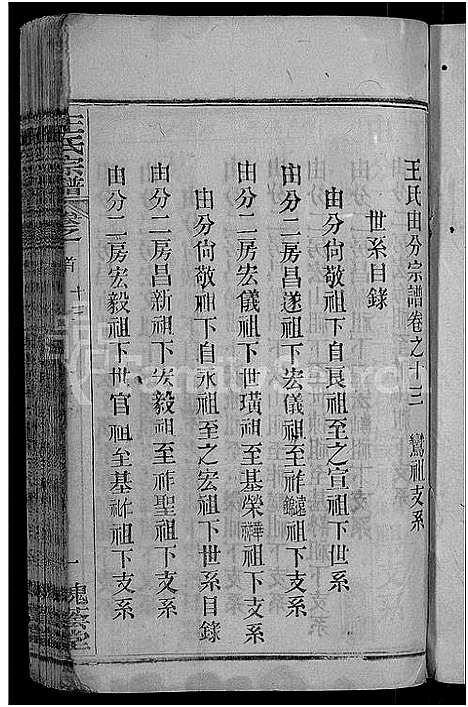 王氏由分宗譜卷之十三　鸞祖支系
世系目錄
由分向敬祖下自長祖至之宣祖下世系
由分二房昌遂祖下宏儀祖至祚遠鑣祖下支系
由分二房宏儀祖下世璜祖至基榮祚華祖下支系
由分向敬祖下自永祖至之宏祖下世系目錄
由分二房昌新祖下宏毅祖至祚聖祖下支系
由分二房宏毅祖下世官祖至基祚祖下支系
王氏宗譜
卷之
首
十三
一
槐蔭堂